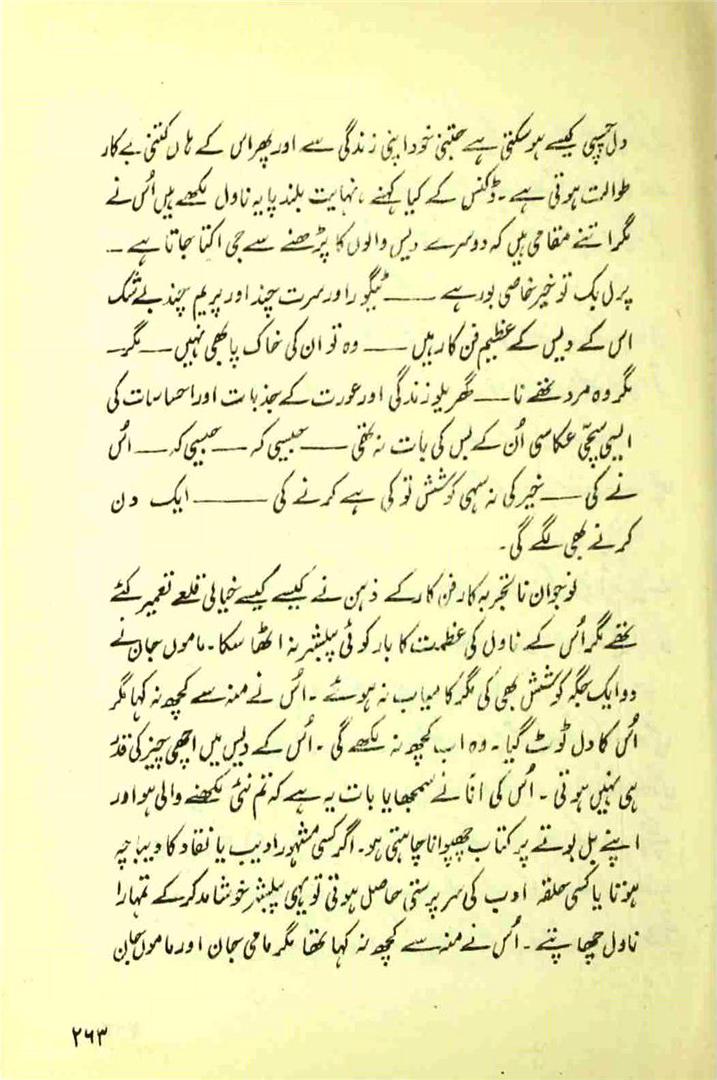 دل چسپی کیسے ہو سکتی ہے جتنی خود اپنی زندگی سے اور پھر اس کے ہاں کتنی بے کار
طوالت ہوتی ہے۔ ڈکنس کے کیا کہنے، نہایت بلند پایہ ناول لکھے ہیں اُس نے
مگر اتنے مقامی ہیں کہ دوسرے دیس والوں کا پڑھنے سے جی اکتا جاتا ہے ۔
پرل بک تو خیر خاصی بور ہے —— ٹیگور اور سرت چند اور پریم چند بے شک
اس کے دیس کے عظیم فن کار ہیں —— وہ تو ان کی خاک پا بھی نہیں — مگر۔
مگر وہ مرد تھے نا — گھریلو زندگی اور عورت کے جذبات اور احساسات کی
ایسی سچی عکاسی اُن کے بس کی بات نہ تھی —— جیسی کہ — جیسی کہ — اُس
نے کی — خیر کی نہ سہی کوشش تو کی ہے کرنے کی ——— ایک دن
کرنے بھی لگے گی۔
نوجوان ناتجربہ کار فن کار کے ذہن نے کیسے کیسے خیالی قلعے تعمیر کئے
تھے مگر اُس کے ناول کی عظمت کا بار کوئی پبلشر نہ اٹھا سکا۔ ماموں جان نے
دو ایک جگہ کوشش بھی کی مگر کامیاب نہ ہوئے ۔ اُس نے منہ سے کچھ نہ کہا مگر
اُس کا دل ٹوٹ گیا ۔ وہ اب کچھ نہ لکھے گی ۔ اُس کے دیس میں اچھی چیز کی قدر
ہی نہیں ہوتی ۔ اُس کی انا نے سمجھایا بات یہ ہے کہ تم نئی لکھنے والی ہو اور
اپنے بل بوتے پر کتاب چھپوانا چاہتی ہو۔ اگر کسی مشہور ادیب یا نقاد کا دیباچہ
ہوتا یا کسی حلقہ ادب کی سرپرستی حاصل ہوتی تو یہی پبلشر خوشامد کر کے تمہارا
ناول چھاپتے ۔ اُس نے منہ سے کچھ نہ کہا تھا مگر مامی جان اور ماموں جان
۲۶۳